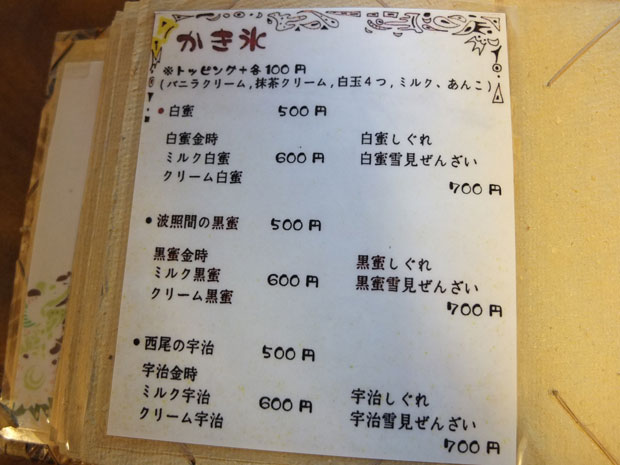 かき氷
※トッピング+各100円
(バニラクリーム,抹茶クリーム,白玉4つ,ミルク、あんこ)
●白蜜 500円
白蜜金時 白蜜しぐれ
ミルク白蜜 600円 白蜜雪見ぜんざい
クリーム白蜜
700円
●波照間の黒蜜 500円
黒蜜金時 黒蜜しぐれ
ミルク黒蜜 600円 黒蜜雪見ぜんざい
クリーム黒蜜
700円
●西尾の宇治 500円
宇治金時
ミルク宇治 600円 宇治しぐれ
クリーム宇治 宇治雪見ぜんざい
700円